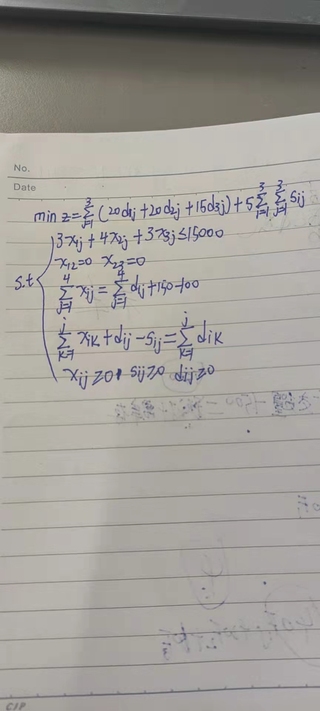 No.
Date
min z = ∑_{j=1}^{3} (20d_{1j} + 20d_{2j} + 15d_{3j}) + 5∑_{i=1}^{3} ∑_{j=1}^{3} s_{ij}
3x_{1j} + 4x_{2j} + 3x_{3j} ≤ 15000
x_{12}=0 x_{23}=0
s.t { ∑_{j=1}^{4} x_{ij} = ∑_{j=1}^{4} d_{ij} + 150 - 100
∑_{k=1}^{j} x_{ik} + d_{ij} - s_{ij} = ∑_{k=1}^{j} d_{ik}
x_{ij} ≥ 0, s_{ij} ≥ 0 d_{ij} ≥ 0